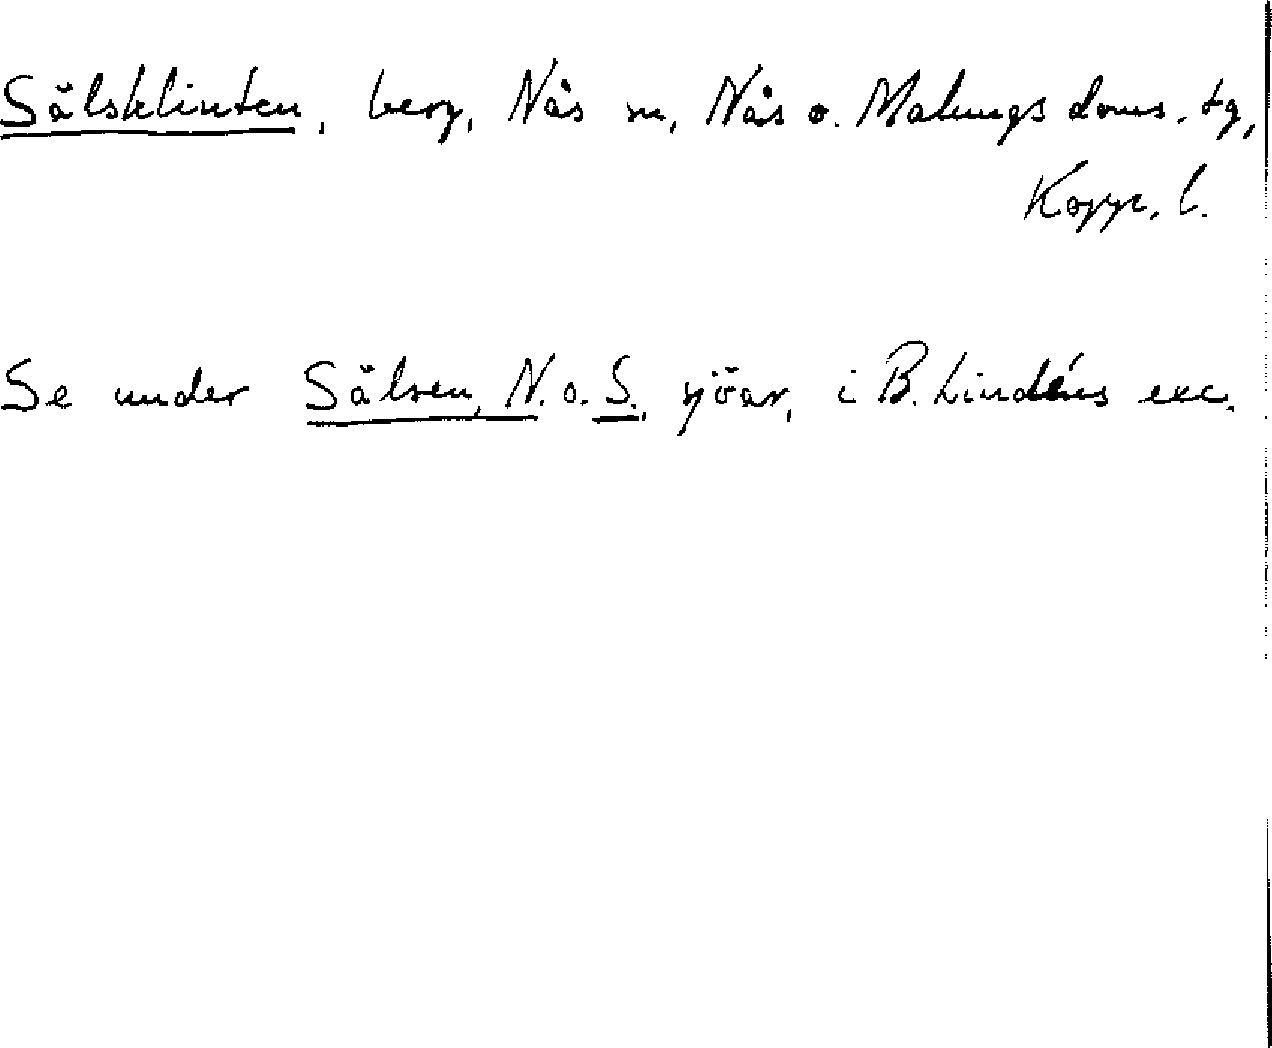 Sälsklinten, berg, Nås sn, Nås o. Malungs doms. tg,
Kopp. l.
Se under Sälsen, N. o. S., sjöar, i B. Lindéns exc.